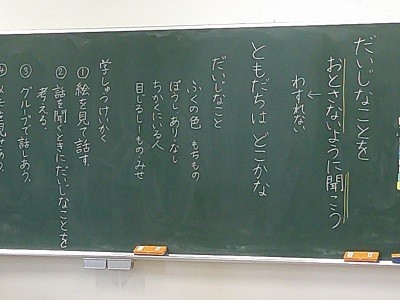 だいじなことを
おとさないように聞こう
←わすれない
ともだちは どこかな
だいじなこと
ふくの色 もちもの
ぼうし あり・なし
ちかくにいる人
目じるし―もの・みせ
学しゅうけいかく
① 絵を見て話す。
② 話を聞くときにだいじなことを
考える。
③ グループで話しあう。
④